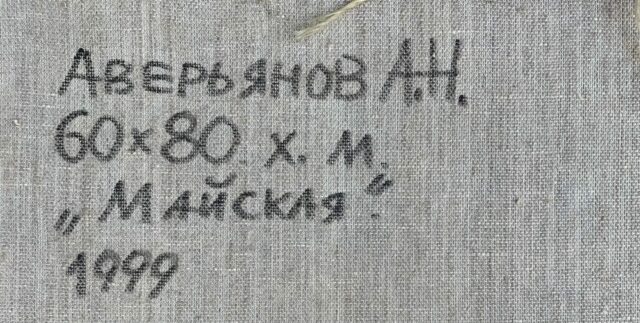 Аверьянов А.Н.
60×80. х. м.
„Майская".
1999